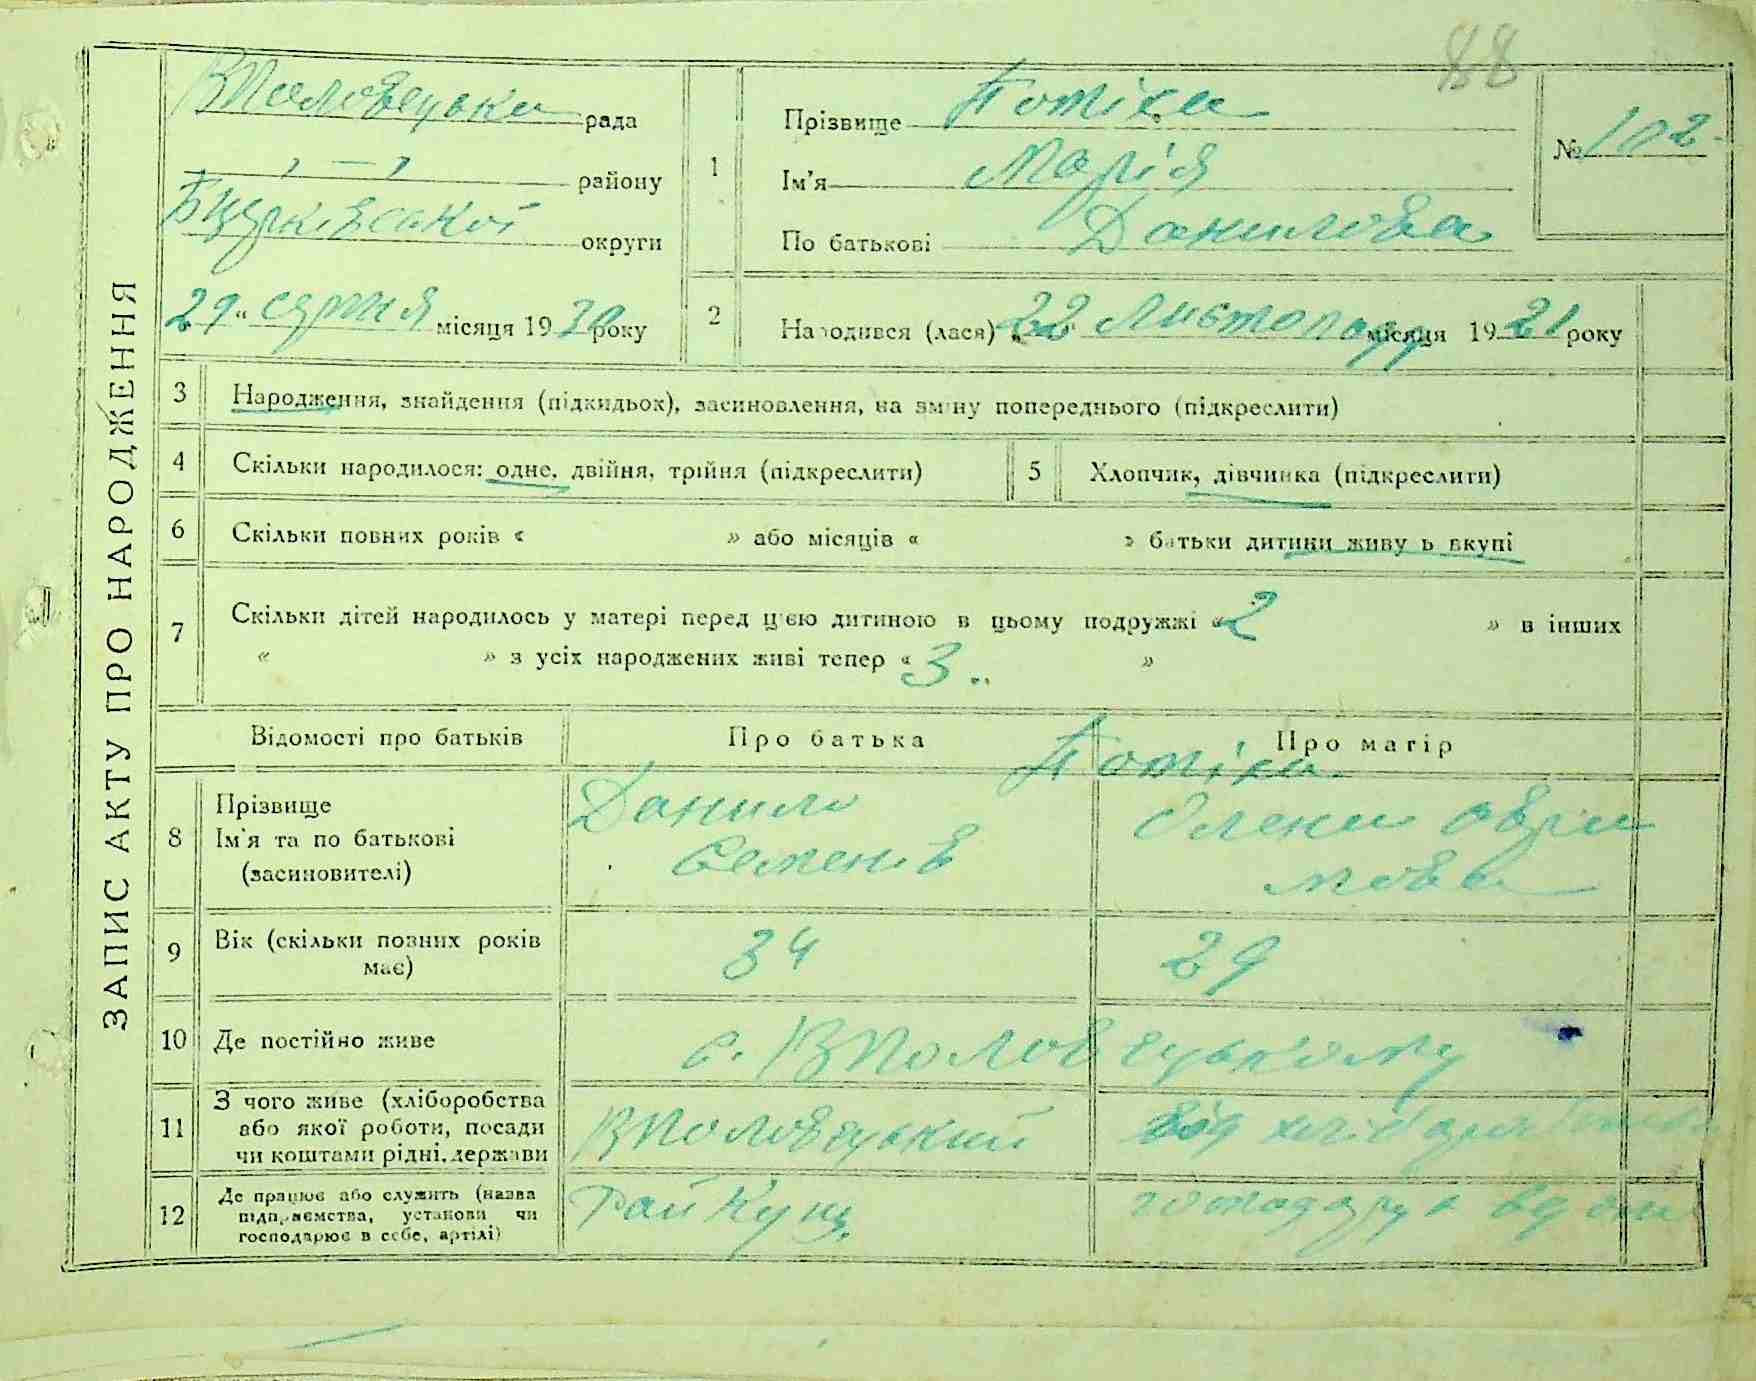 88
ЗАПИС АКТУ ПРО НАРОДЖЕННЯ
ВПоловецька рада
" — " району
Бцерківської округи
29 " серпня місяця 1930 року
1
Прізвище Потіха
Ім'я Марія
По батькові Данилова
№ 102
2
Народився (лася) „22" листопаду місяця 1921 року
3 Народження, знайдення (підкидьох), засиновлення, на зміну попереднього (підкреслити)
4 Скільки народилося: одне, двійня, трійня (підкреслити)
5 Хлопчик, дівчинка (підкреслити)
6 Скільки повних років « » або місяців « » батьки дитини живуть вкупі
7 Скільки дітей народилось у матері перед цією дитиною в цьому подружжі «2 » в інших
« » з усіх народжених живі тепер « 3 »
Відомості про батьків Про батька Про матір
Потіха
8 Прізвище
Ім'я та по батькові
(засиновителі)
Данило
Семенів
Олена Оври
мова
9 Вік (скільки повних років
має)
34 29
10 Де постійно живе с. ВПоловецькому
11 З чого живе (хліборобства
або якої роботи, посади
чи коштами рідні, держави
ВПоловецький від
12 Де працює або служить (назва
підприємства, установи чи
господарює в себе, артілі)
Рай